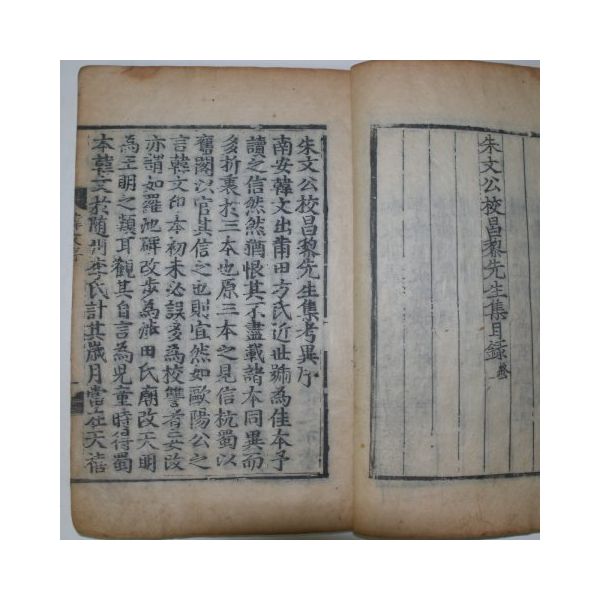 朱文公校昌黎先生集目録 終
朱文公校昌黎先生集考異序
南安韓文出莆田方氏近世號為佳本予
讀之信然然猶恨其不盡載諸本同異而
多折衷於三本也原三本之見信杭蜀以
舊閣以官其信之也則宜然如歐陽公之
言韓文印本初未必誤多為校讐者妄改
亦謂如羅池碑改步為涉田氏廟改天明
為王明之類耳觀其自言為兒童時得蜀
本韓文於随州李氏計其歳月當在天禧